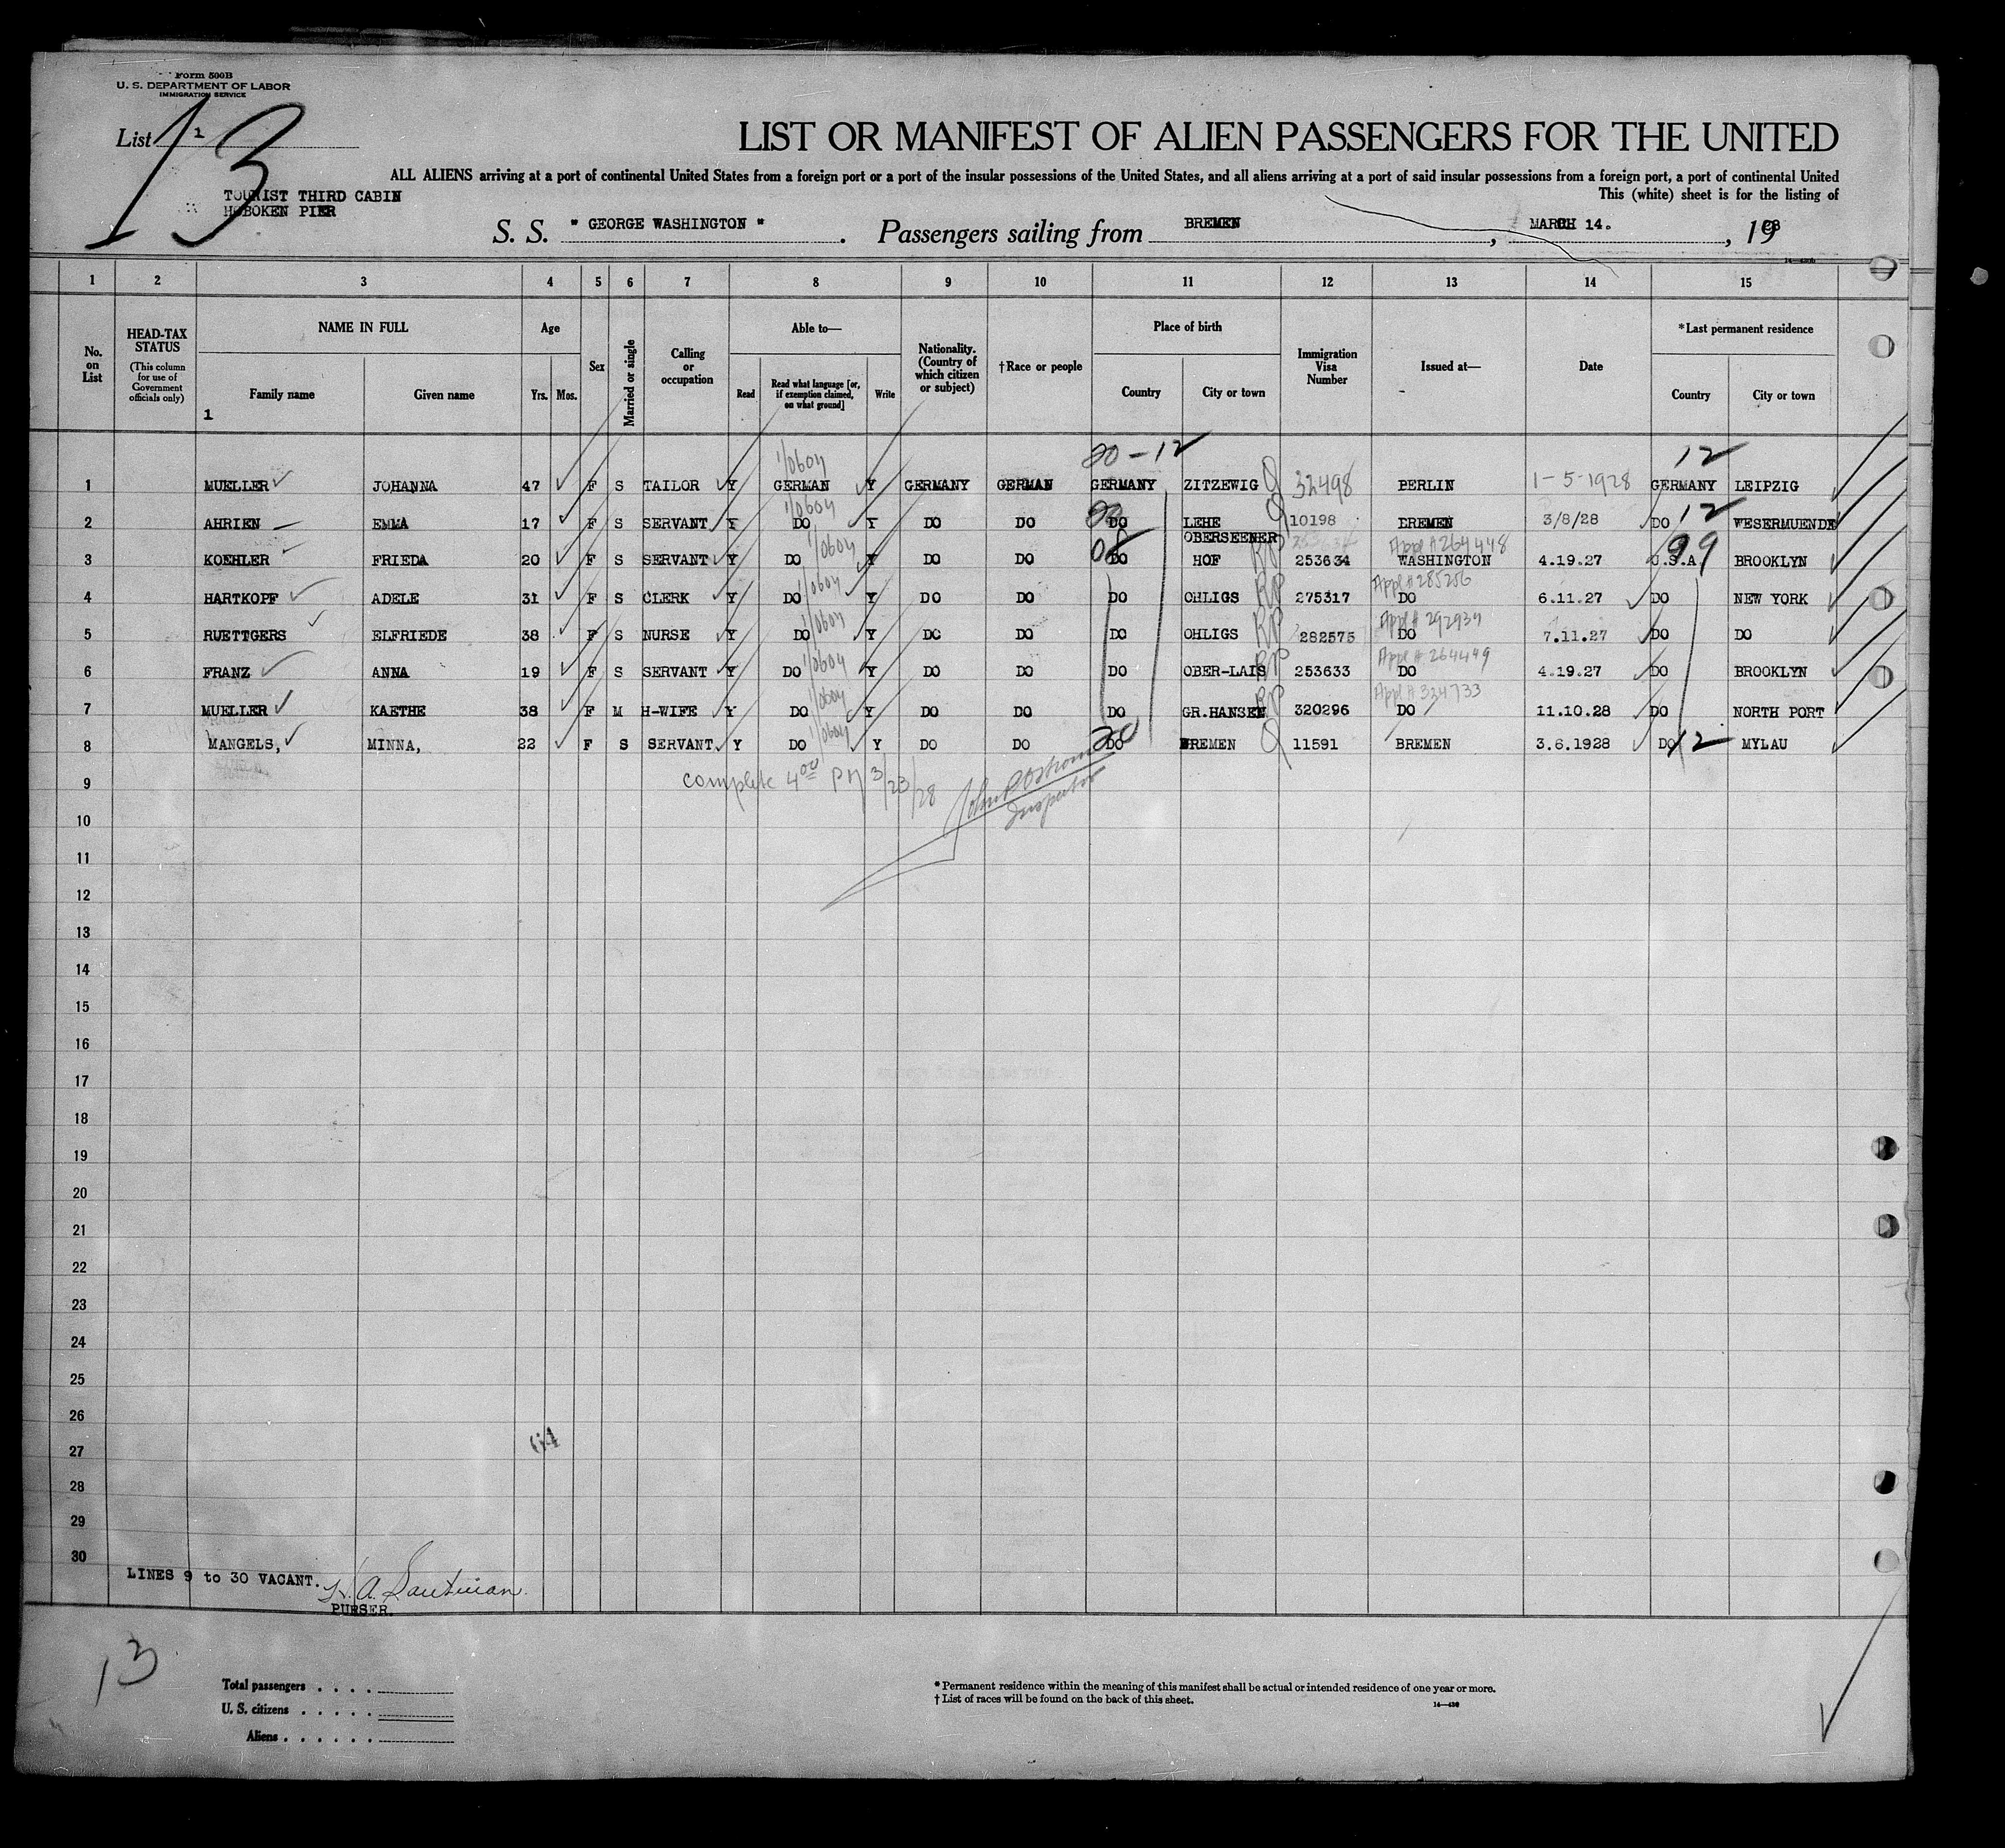 Form 500B
U. S. DEPARTMENT OF LABOR
IMMIGRATION SERVICE
List 2
13
LIST OR MANIFEST OF ALIEN PASSENGERS FOR THE UNITED
ALL ALIENS arriving at a port of continental United States from a foreign port or a port of the insular possessions of the United States, and all aliens arriving at a port of said insular possessions from a foreign port, a port of continental United
This (white) sheet is for the listing of
TOURIST THIRD CABIN
HOBOKEN PIER
S. S. " GEORGE WASHINGTON " . Passengers sailing from BREMEN , MARCH 14. , 1928
1 2 3 4 5 6 7 8 9 10 11 12 13 14 15
No. on List
HEAD-TAX STATUS (This column for use of Government officials only)
NAME IN FULL
Family name
Given name
1
Age
Yrs. Mos.
Sex
Married or single
Calling or occupation
Able to—
Read
Read what language [or, if exemption claimed, on what ground]
Write
Nationality. (Country of which citizen or subject)
†Race or people
Place of birth
Country
City or town
Immigration Visa Number
Issued at—
Date
*Last permanent residence
Country
City or town
20-12 12
1 MUELLER JOHANNA 47 F S TAILOR Y GERMAN Y GERMANY GERMAN GERMANY ZITZEWIG 32498 BERLIN 1-5-1928 GERMANY LEIPZIG
2 AHRIEN EMMA 17 F S SERVANT Y DO Y DO DO DO LEHE 10198 BREMEN 3/8/28 DO 12 WESERMUENDE
OBERSEENER Appl # 264448
3 KOEHLER FRIEDA 20 F S SERVANT Y DO Y DO DO DO HOF RP 253634 WASHINGTON 4.19.27 U.S.A. 99 BROOKLYN
Appl # 285256
4 HARTKOPF ADELE 31 F S CLERK Y DO Y DO DO DO OHLIGS RP 275317 DO 6.11.27 DO NEW YORK
Appl # 292939
5 RUETTGERS ELFRIEDE 38 F S NURSE Y DO Y DO DO DO OHLIGS RP 282575 DO 7.11.27 DO DO
Appl # 264449
6 FRANZ ANNA 19 F S SERVANT Y DO Y DO DO DO OBER-LAIS RP 253633 DO 4.19.27 DO BROOKLYN
Appl # 324733
7 MUELLER KAETHE 38 F M H-WIFE Y DO Y DO DO DO GR.HANSEN RP 320296 DO 11.10.28 DO NORTH PORT
8 MANGELS, MINNA, 22 F S SERVANT. Y DO Y DO DO DO BREMEN 11591 BREMEN 3.6.1928 DO 12 MYLAU
complete 4 00 PM 3/23/28
Inspector
9
10
11
12
13
14
15
16
17
18
19
20
21
22
23
24
25
26
27
28
29
30
LINES 9 to 30 VACANT.
PURSER.
13
Total passengers . . . .
U. S. citizens . . . . .
Aliens . . . . . .
* Permanent residence within the meaning of this manifest shall be actual or intended residence of one year or more.
† List of races will be found on the back of this sheet.